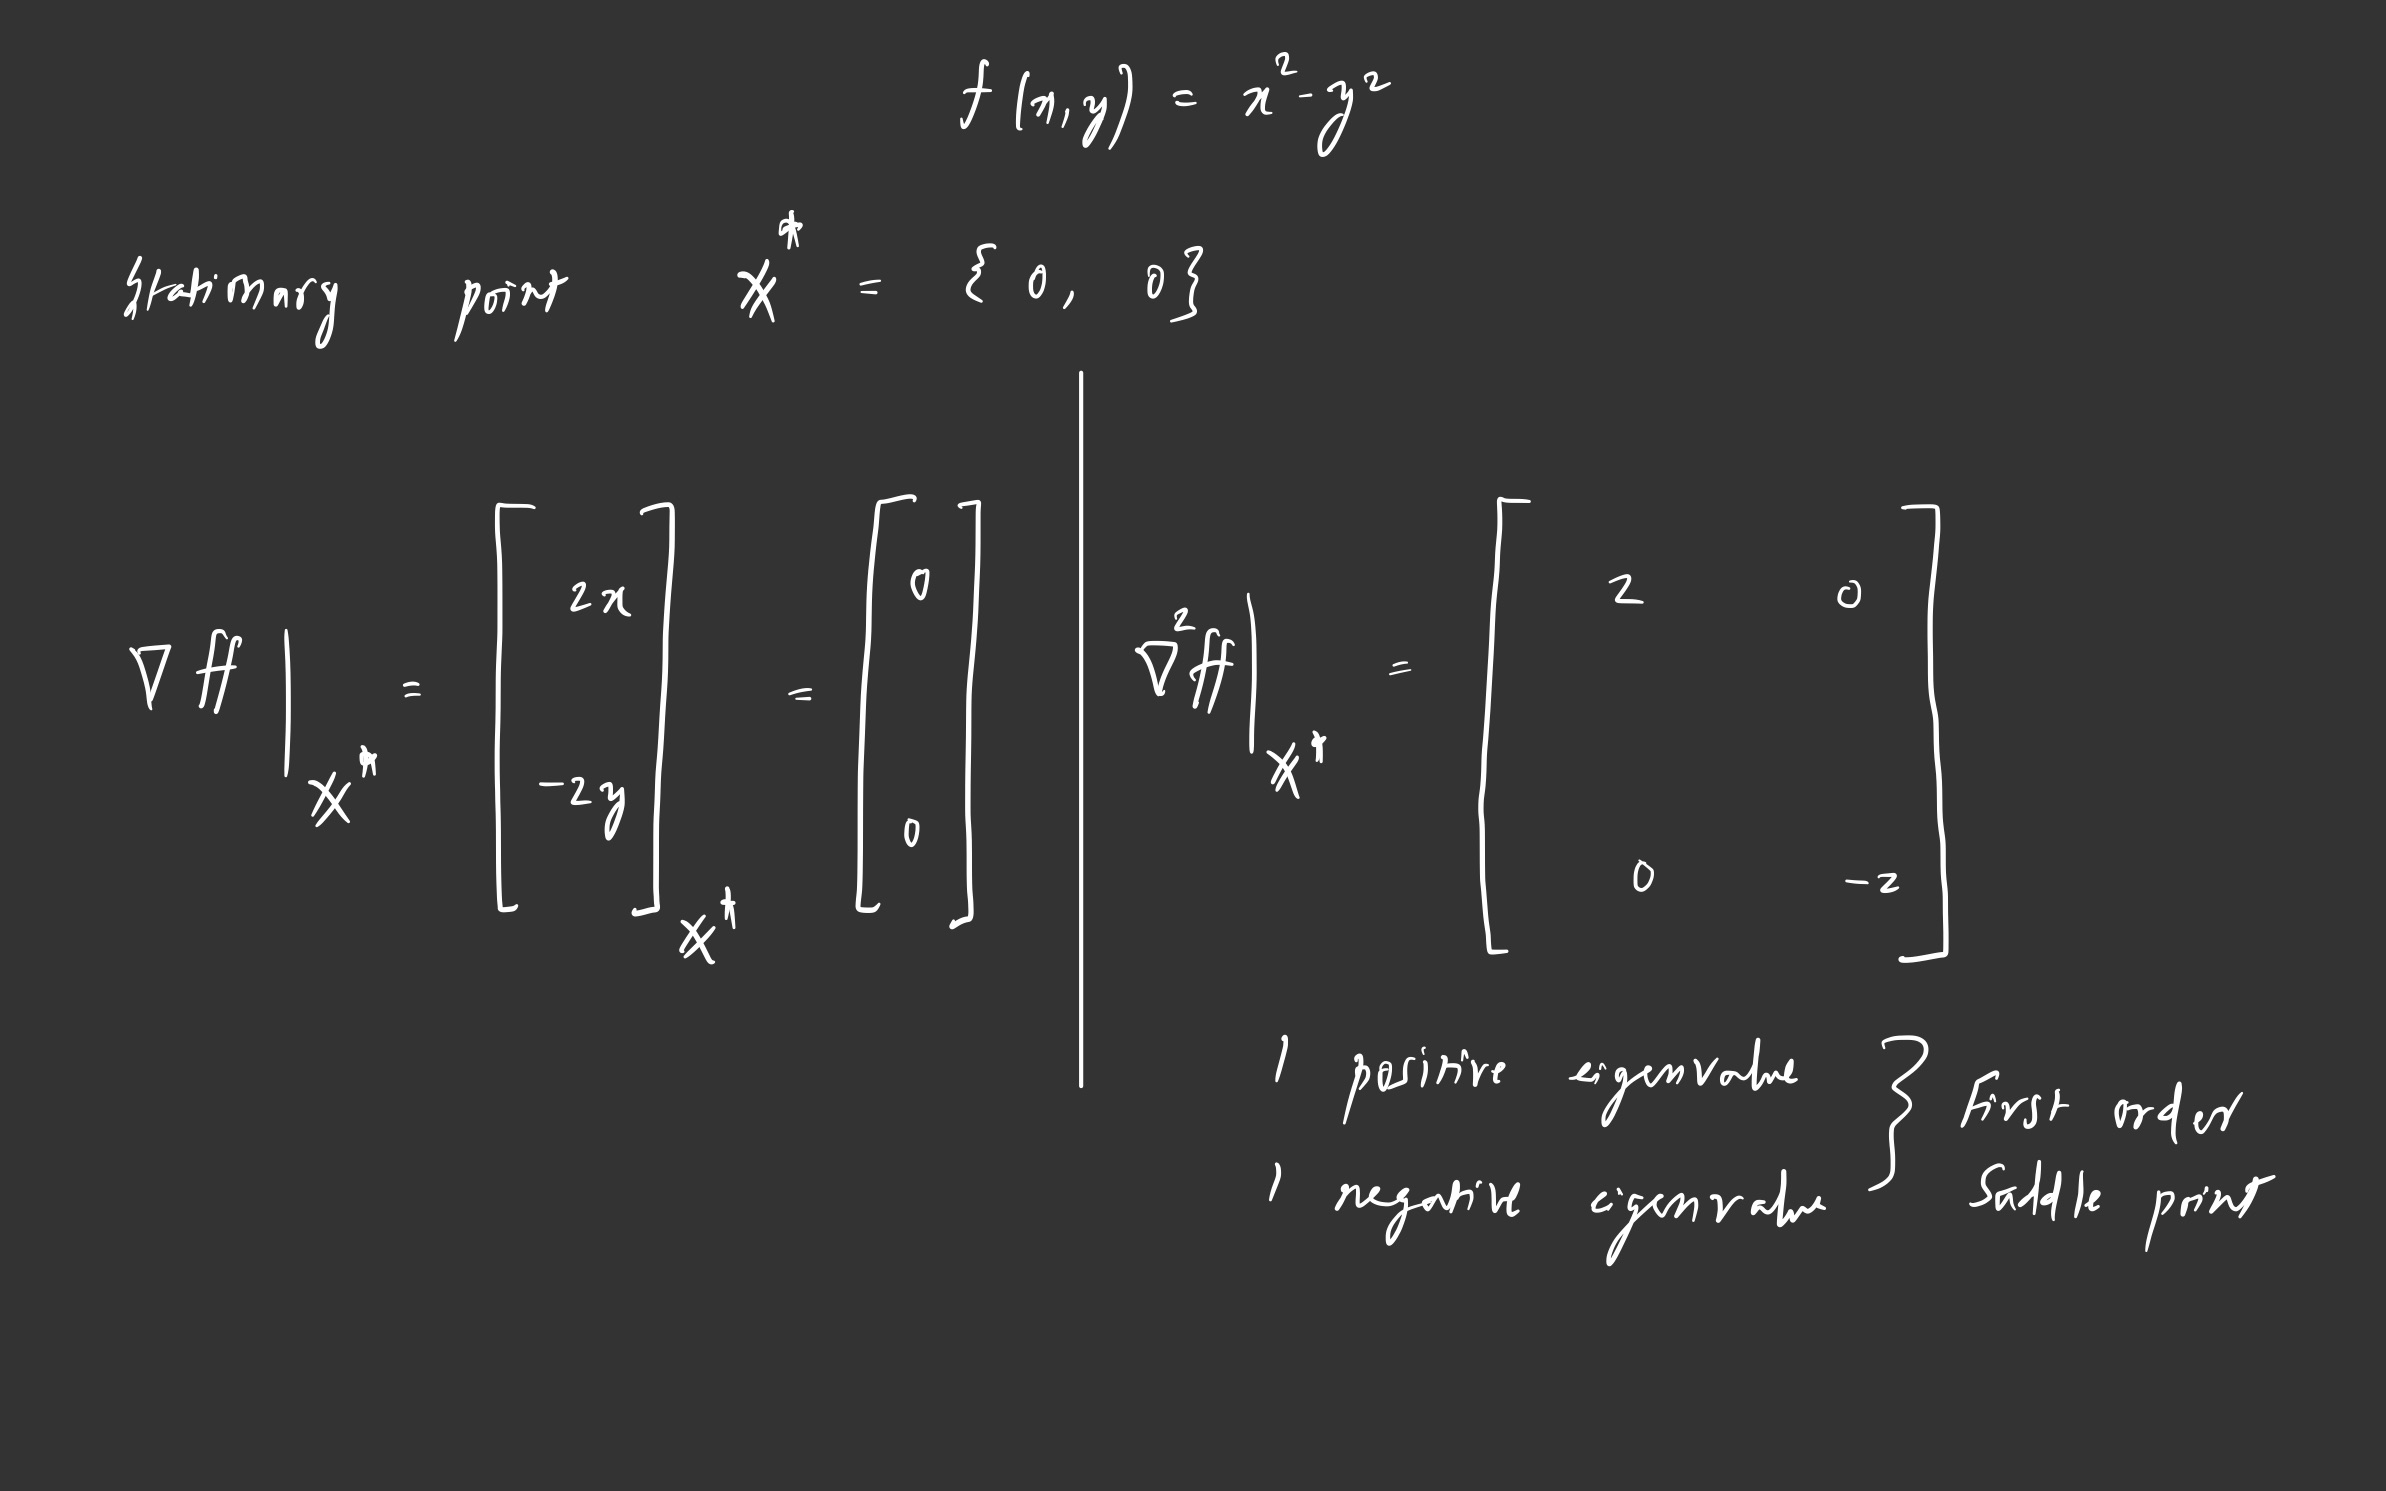 f(x,y) = x² - y²
Stationary point X* = {0, 0}
∇f|X* = [2x; -2y]X* = [0; 0]
∇²f|X* = [2 0; 0 -2]
1 positive eigenvalue
1 negative eigenvalue
} First order
Saddle point